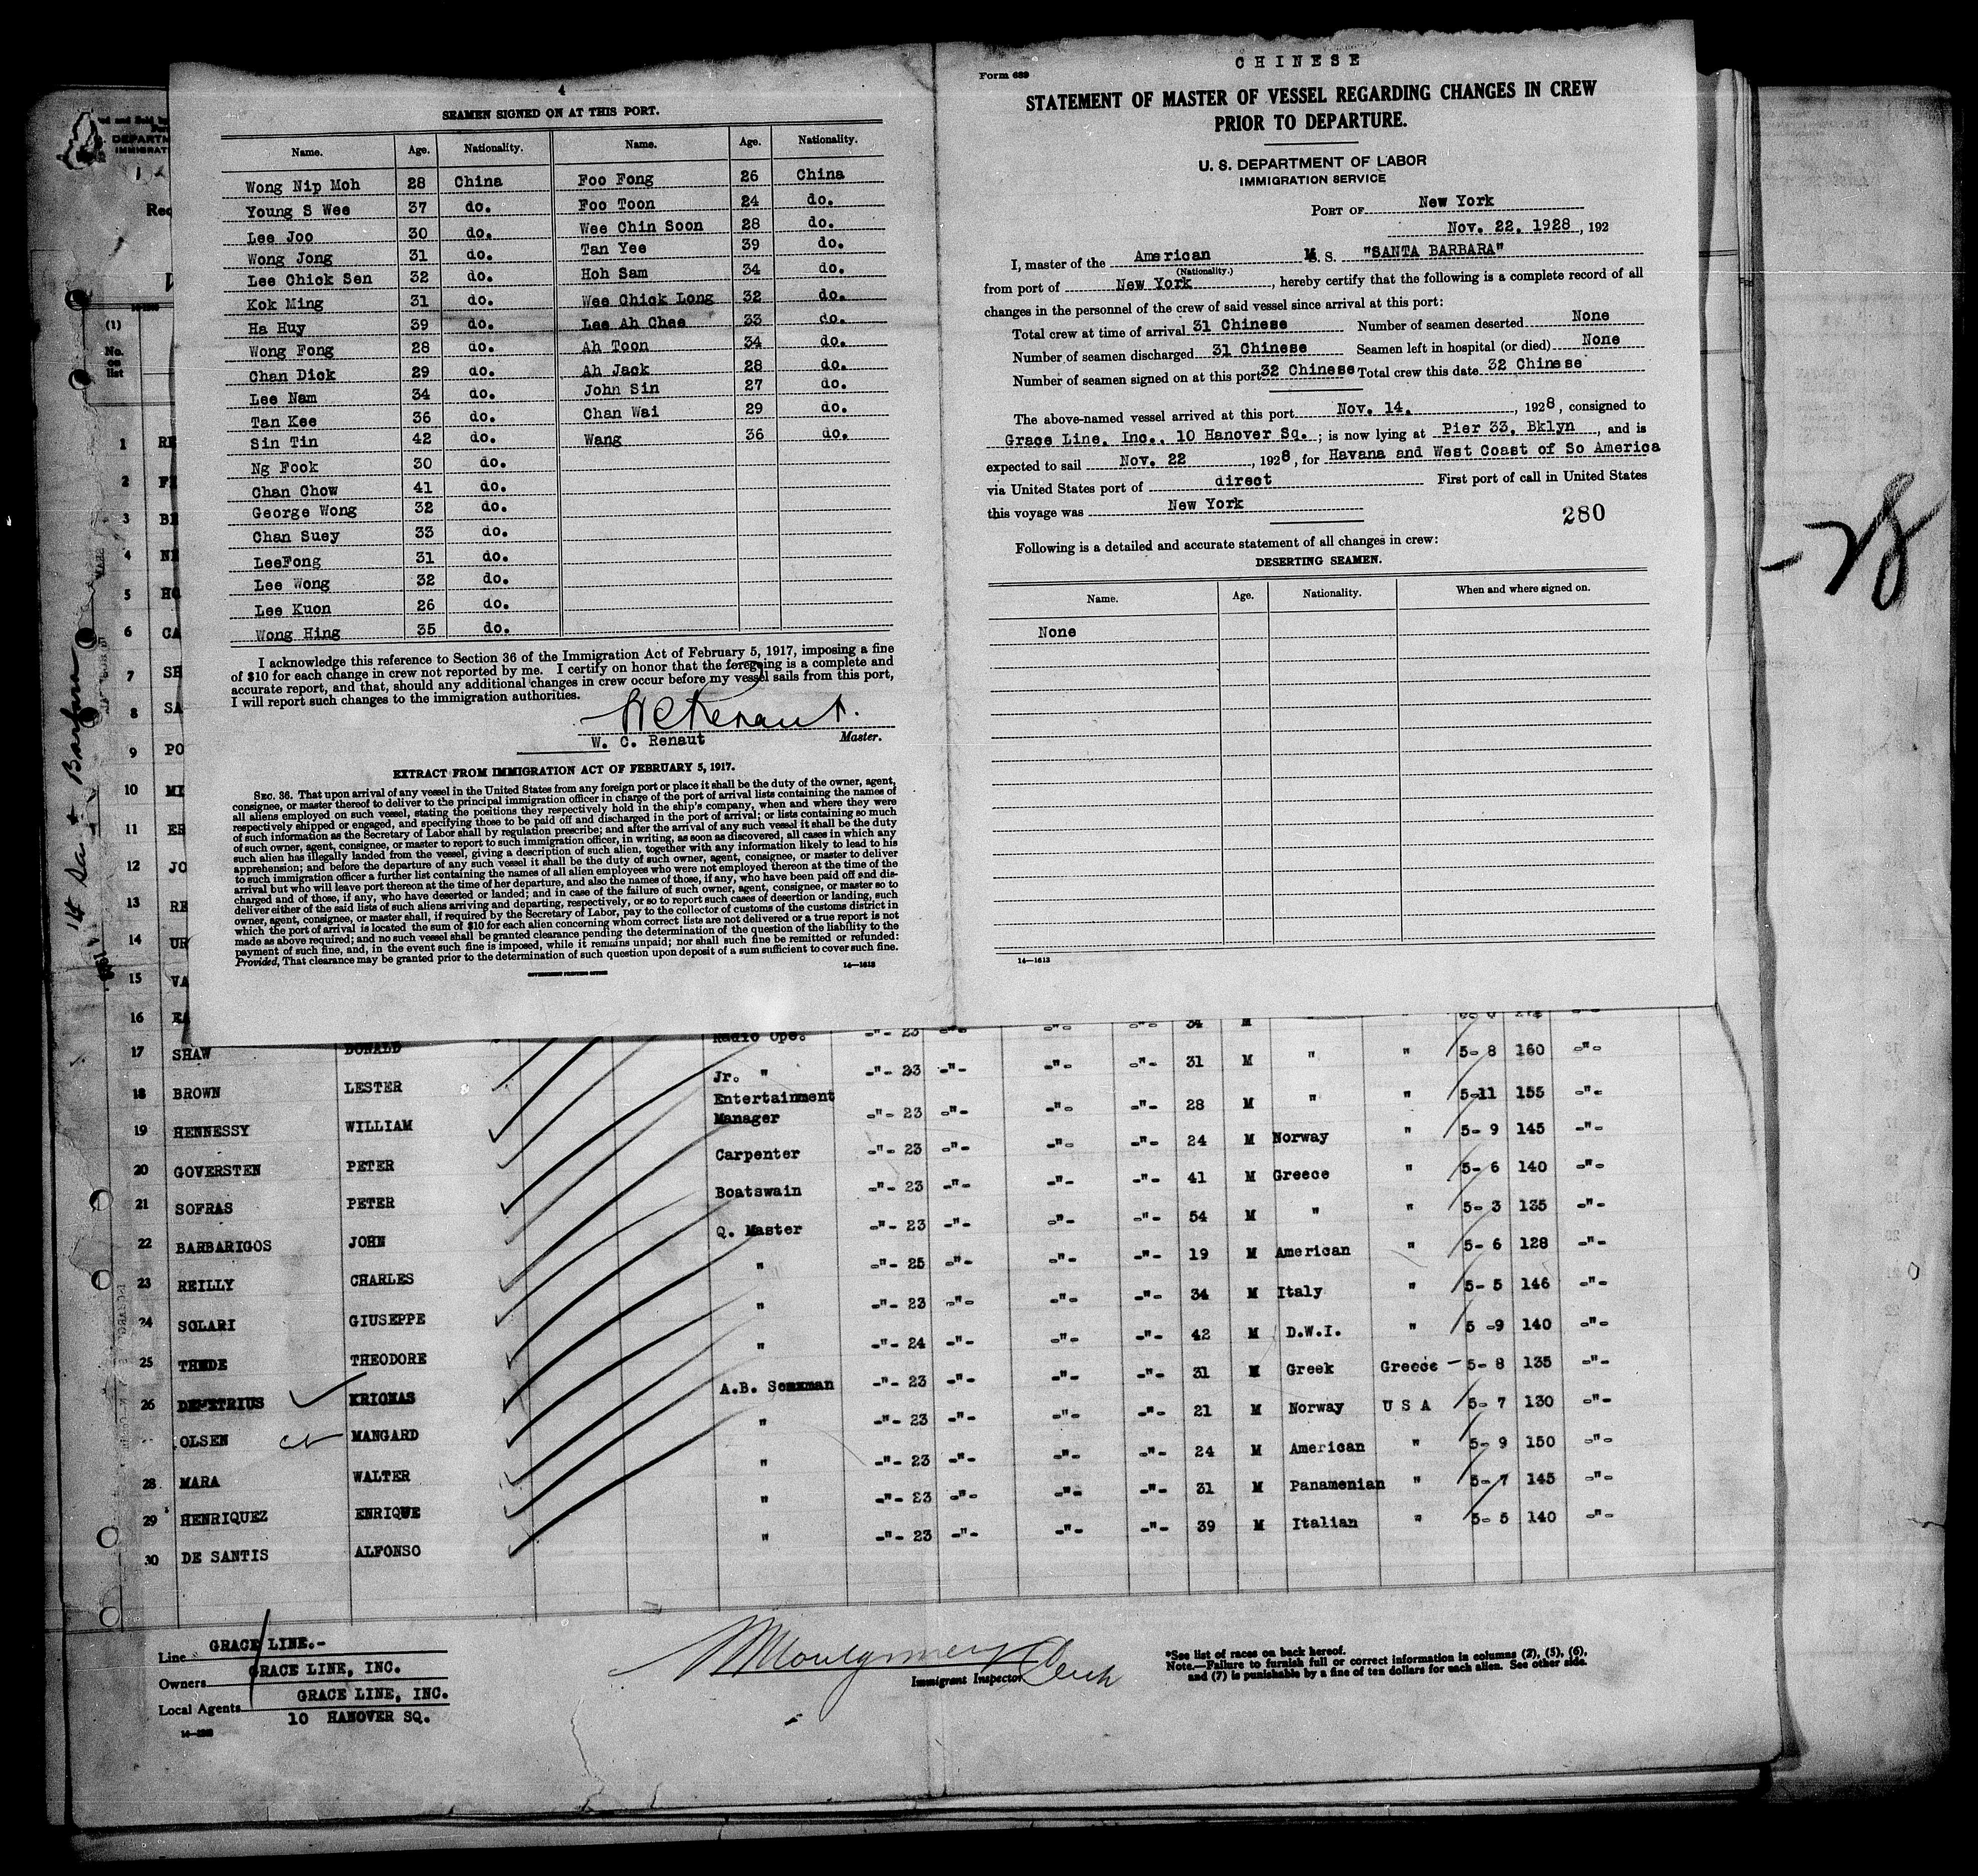 4
SEAMEN SIGNED ON AT THIS PORT.
Name. Age. Nationality. Name. Age. Nationality.
Wong Nip Moh 28 China Foo Fong 26 China
Young S Wee 37 do. Foo Toon 24 do.
Lee Joo 30 do. Wee Chin Soon 28 do.
Wong Jong 31 do. Tan Yee 39 do.
Lee Chick Sen 32 do. Hoh Sam 34 do.
Kok Ming 31 do. Wee Chick Long 32 do.
Ha Huy 39 do. Lee Ah Chee 33 do.
Wong Fong 28 do. Ah Toon 34 do.
Chan Dick 29 do. Ah Jack 28 do.
Lee Nam 34 do. John Sin 27 do.
Tan Kee 36 do. Chan Wai 29 do.
Sin Tin 42 do. Wang 36 do.
Ng Fook 30 do.
Chan Chow 41 do.
George Wong 32 do.
Chan Suey 33 do.
LeeFong 31 do.
Lee Wong 32 do.
Lee Kuon 26 do.
Wong Hing 35 do.
I acknowledge this reference to Section 36 of the Immigration Act of February 5, 1917, imposing a fine
of $10 for each change in crew not reported by me. I certify on honor that the foregoing is a complete and
accurate report, and that, should any additional changes in crew occur before my vessel sails from this port,
I will report such changes to the immigration authorities.
W C Renaut.
W. C. Renaut Master.
EXTRACT FROM IMMIGRATION ACT OF FEBRUARY 5, 1917.
SEC. 36. That upon arrival of any vessel in the United States from any foreign port or place it shall be the duty of the owner, agent,
consignee, or master thereof to deliver to the principal immigration officer in charge of the port of arrival lists containing the names of
all aliens employed on such vessel, stating the positions they respectively hold in the ship's company, when and where they were
respectively shipped or engaged, and specifying those to be paid off and discharged in the port of arrival; or lists containing so much
of such information as the Secretary of Labor shall by regulation prescribe; and after the arrival of any such vessel it shall be the duty
of such owner, agent, consignee, or master to report to such immigration officer, in writing, as soon as discovered, all cases in which any
such alien has illegally landed from the vessel, giving a description of such alien, together with any information likely to lead to his
apprehension; and before the departure of any such vessel it shall be the duty of such owner, agent, consignee, or master to deliver
to such immigration officer a further list containing the names of all alien employees who were not employed thereon at the time of the
arrival but who will leave port thereon at the time of her departure, and also the names of those, if any, who have been paid off and dis-
charged and of those, if any, who have deserted or landed; and in case of the failure of such owner, agent, consignee, or master so to
deliver either of the said lists of such aliens arriving and departing, respectively, or so to report such cases of desertion or landing, such
owner, agent, consignee, or master shall, if required by the Secretary of Labor, pay to the collector of customs of the customs district in
which the port of arrival is located the sum of $10 for each alien concerning whom correct lists are not delivered or a true report is not
made as above required; and no such vessel shall be granted clearance pending the determination of the question of the liability to the
payment of such fine, and, in the event such fine is imposed, while it remains unpaid; nor shall such fine be remitted or refunded:
Provided, That clearance may be granted prior to the determination of such question upon deposit of a sum sufficient to cover such fine.
GOVERNMENT PRINTING OFFICE 14—1613
CHINESE
Form 689
STATEMENT OF MASTER OF VESSEL REGARDING CHANGES IN CREW
PRIOR TO DEPARTURE.
U. S. DEPARTMENT OF LABOR
IMMIGRATION SERVICE
PORT OF New York
Nov. 22. 1928, 192
I, master of the American M. S. "SANTA BARBARA"
(Nationality.)
from port of New York, hereby certify that the following is a complete record of all
changes in the personnel of the crew of said vessel since arrival at this port:
Total crew at time of arrival 31 Chinese Number of seamen deserted None
Number of seamen discharged 31 Chinese Seamen left in hospital (or died) None
Number of seamen signed on at this port 32 Chinese Total crew this date 32 Chinese
The above-named vessel arrived at this port Nov. 14., 1928, consigned to
Grace Line. Inc.. 10 Hanover Sq.; is now lying at Pier 33. Bklyn, and is
expected to sail Nov. 22, 1928, for Havana and West Coast of So America
via United States port of direct First port of call in United States
this voyage was New York
280
Following is a detailed and accurate statement of all changes in crew:
DESERTING SEAMEN.
Name. Age. Nationality. When and where signed on.
None
14—1613
-28
DEPARTM
IMMIGRAT
(1)
No.
on
list
14 Sa + Barbara
1 RE
2
3
4
5
6 CA
7 SE
8 SA
9 PO
10 MI
11
12 JO
13 RE
14 UR
15 VA
16 34 M
17 SHAW DONALD Radio Ope. -"- 23 -"- -"- -"- 31 M " " 5- 8 160 -"-
18 BROWN LESTER Jr. " -"- 23 -"- -"- -"- 28 M " " 5-11 155 -"-
19 HENNESSY WILLIAM Entertainment Manager -"- 23 -"- -"- -"- 24 M Norway " 5- 9 145 -"-
20 GOVERSTEN PETER Carpenter -"- 23 -"- -"- -"- 41 M Greece " 5- 6 140 -"-
21 SOFRAS PETER Boatswain -"- 23 -"- -"- -"- 54 M " " 5- 3 135 -"-
22 BARBARIGOS JOHN Q. Master -"- 23 -"- -"- -"- 19 M American " 5- 6 128 -"-
23 REILLY CHARLES " -"- 25 -"- -"- -"- 34 M Italy " 5- 5 146 -"-
24 SOLARI GIUSEPPE " -"- 23 -"- -"- -"- 42 M D.W.I. " 5 -9 140 -"-
25 THEDE THEODORE " -"- 24 -"- -"- -"- 31 M Greek Greece 5- 8 135 -"-
26 DEMETRIUS KRIONAS A.B. Seaman -"- 23 -"- -"- -"- 21 M Norway U S A 5- 7 130 -"-
OLSEN MANGARD " -"- 23 -"- -"- -"- 24 M American " 5- 9 150 -"-
28 MARA WALTER " -"- 23 -"- -"- -"- 31 M Panamenian " 5- 7 145 -"-
29 HENRIQUEZ ENRIQUE " -"- 23 -"- -"- -"- 39 M Italian " 5- 5 140 -"-
30 DE SANTIS ALFONSO " -"- 23
Line GRACE LINE.-
Owners GRACE LINE, INC.
Local Agents GRACE LINE, INC.
10 HANOVER SQ.
Montgomery
Immigrant Inspector
*See list of races on back hereof.
Note.—Failure to furnish full or correct information in columns (2), (5), (6),
and (7) is punishable by a fine of ten dollars for each alien. See other side.